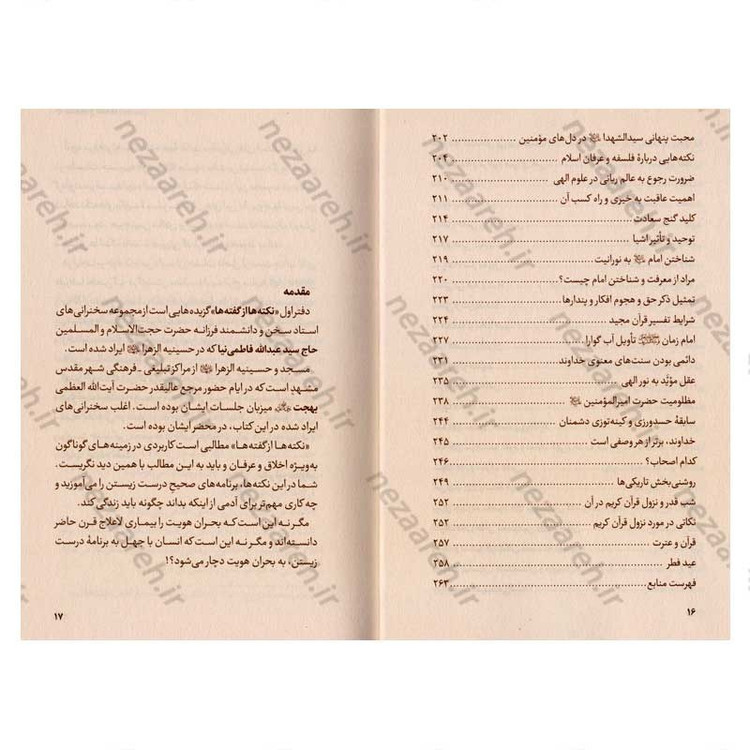 محبت پنهانی سیدالشهدا در دل‌های مؤمنین ۲۰۲
نکته‌هایی دربارهٔ فلسفه و عرفان اسلام ۲۰۴
ضرورت رجوع به عالم ربانی در علوم الهی ۲۱۰
اهمیت عاقبت به خیری و راه کسب آن ۲۱۱
کلید گنج سعادت ۲۱۴
توحید و تأثیر اشیا ۲۱۷
شناختن امام به نورانیت ۲۱۹
مراد از معرفت و شناختن امام چیست؟ ۲۲۰
تمثیل ذکر حق و هجوم افکار و پندارها ۲۲۳
شرایط تفسیر قرآن مجید ۲۲۴
امام زمان تأویل آب گوارا ۲۲۷
دائمی بودن سنت‌های معنوی خداوند ۲۳۱
عقل مؤیَّد به نور الهی ۲۳۵
مظلومیت حضرت امیرالمؤمنین ۲۳۸
سابقهٔ حسدورزی و کینه‌توزی دشمنان ۲۴۴
خداوند، برتر از هر وصفی است ۲۴۵
کدام اصحاب؟ ۲۴۶
روشنی‌بخش تاریکی‌ها ۲۴۹
شب قدر و نزول قرآن کریم در آن ۲۵۲
نکاتی در مورد نزول قرآن کریم ۲۵۲
قرآن و عترت ۲۵۷
عید فطر ۲۵۸
فهرست منابع ۲۶۳
۱۶
مقدمه
دفتر اول «نکته‌ها از گفته‌ها» گزیده‌هایی است از مجموعه سخنرانی‌های
استاد سخن و دانشمند فرزانه حضرت حجت‌الاسلام و المسلمین
حاج سید عبدالله فاطمی‌نیا که در حسینیه الزهرا ایراد شده است.
مسجد و حسینیه الزهرا از مراکز تبلیغی ـ فرهنگی شهر مقدس
مشهد است که در ایام حضور مرجع عالیقدر حضرت آیت‌الله العظمی
بهجت میزبان جلسات ایشان بوده است. اغلب سخنرانی‌های
ایراد شده در این کتاب، در محضر ایشان بوده است.
«نکته‌ها از گفته‌ها» مطالبی است کاربردی در زمینه‌های گوناگون
به‌ویژه اخلاق و عرفان و باید به این مطالب با همین دید نگریست.
شما در این نکته‌ها، برنامه‌های صحیح درست زیستن را می‌آموزید و
چه کاری مهم‌تر برای آدم از اینکه بداند چگونه باید زندگی کند.
مگر نه این است که بحران هویت را بیماری لاعلاج قرن حاضر
دانسته‌اند و مگر نه این است که انسان با جهل به برنامهٔ درست
زیستن، به بحران هویت دچار می‌شود؟!
۱۷
nezaareh.ir
nezaareh.ir
nezaareh.ir
nezaareh.ir
nezaareh.ir
nezaareh.ir